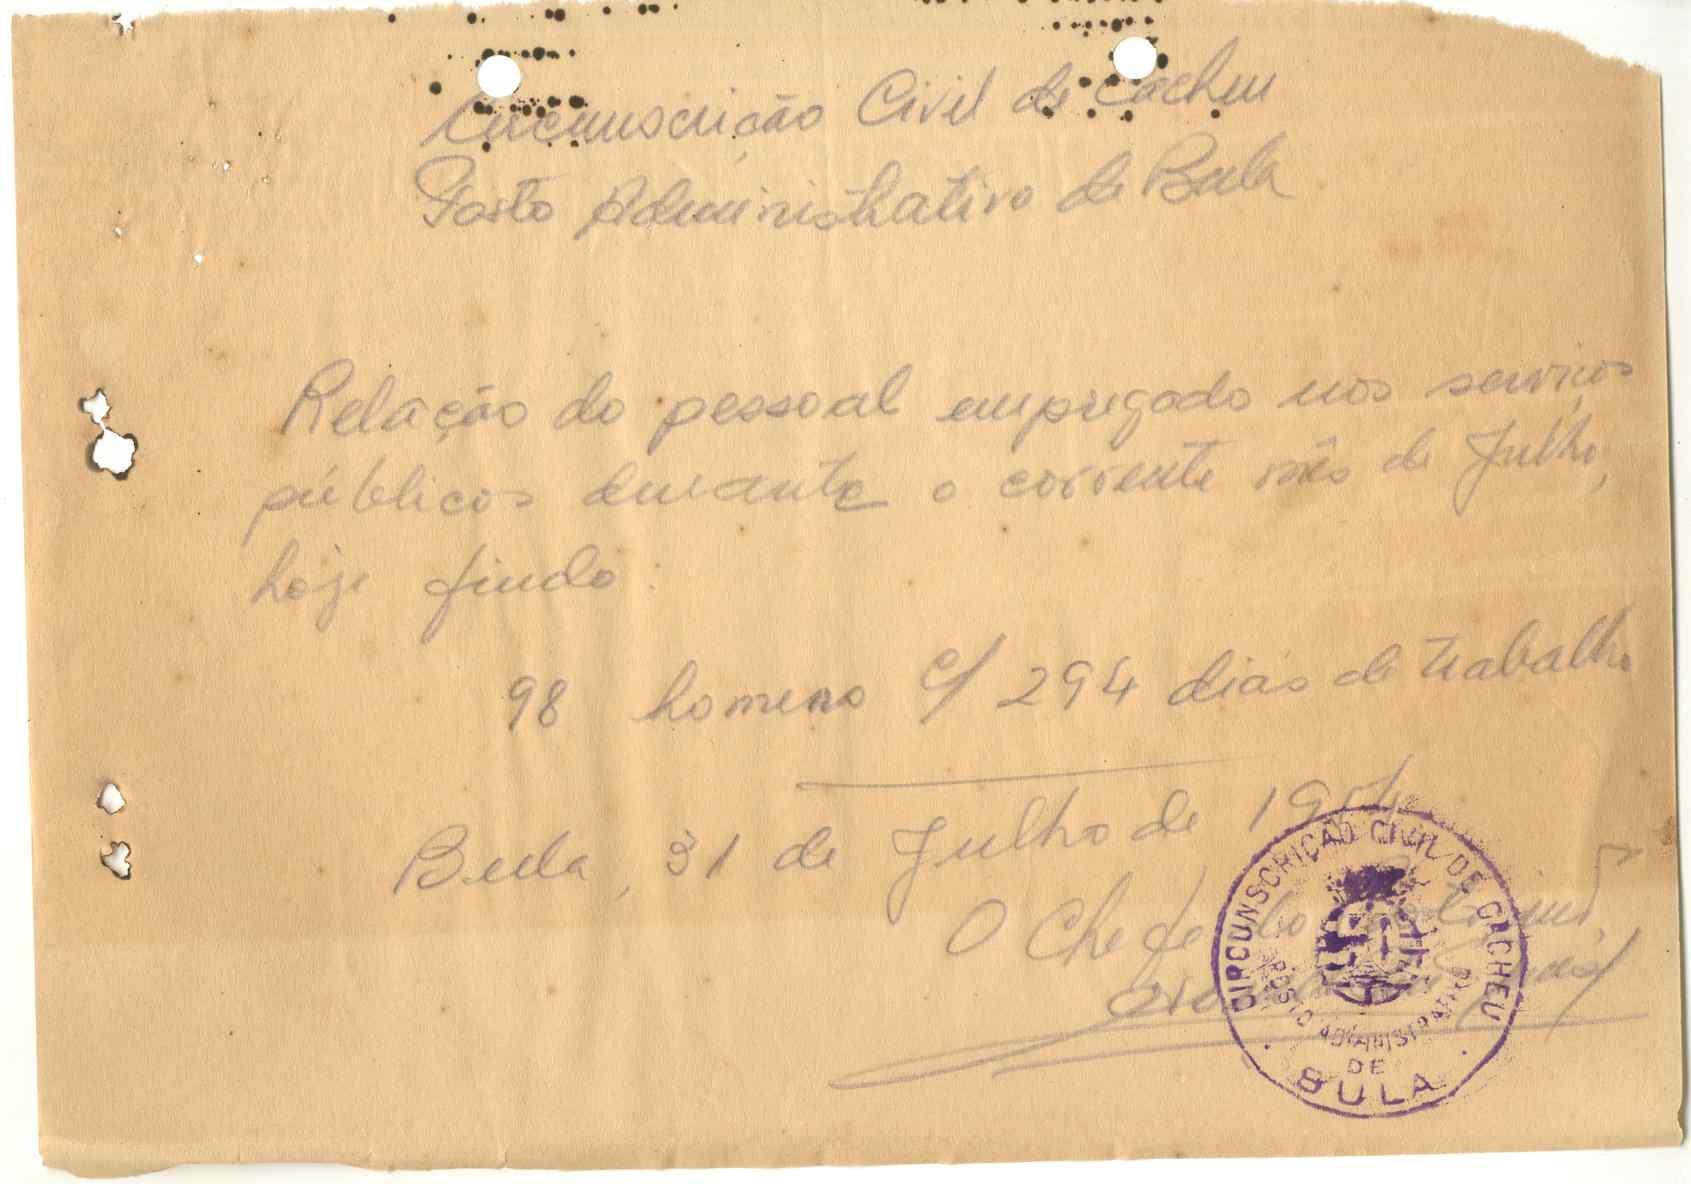 Circunscrição Civil de Cacheu
Posto Administrativo de Bula
Relação do pessoal empregado nos serviços
públicos durante o corrente mês de Julho,
hoje findo:
98 homens c/ 294 dias de trabalho
Bula, 31 de Julho de 1954
O Chefe do
CIRCUNSCRIÇÃO CIVIL DE CACHEU
POSTO ADMINISTRATIVO
DE
BULA